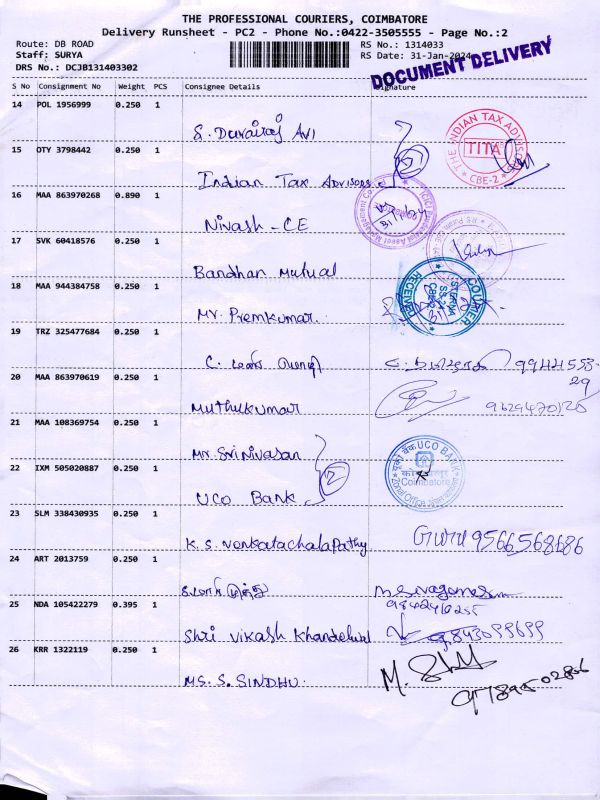 THE PROFESSIONAL COURIERS, COIMBATORE
Delivery Runsheet - PC2 - Phone No.:0422-3505555 - Page No.:2
Route: DB ROAD RS No.: 1314033
Staff: SURYA RS Date: 31-Jan-2024
DRS No.: DCJB131403302
DOCUMENT DELIVERY
S No Consignment No Weight PCS Consignee Details Signature
14 POL 1956999 0.250 1
S. Durairaj AVI
15 OTY 3798442 0.250 1
THE INDIAN TAX ADVISORS
TITA
CBE-2
Indian Tax Advisors
16 MAA 863970268 0.890 1
Nivash - CE
17 SVK 60418576 0.250 1
Bandhan Mutual
18 MAA 944384758 0.250 1
COURIER
RECEIVED
Mr Premkumar.
19 TRZ 325477684 0.250 1
99441558
29
20 MAA 863970619 0.250 1
Muthukumar 9629470120
21 MAA 108369754 0.250 1
Mr Srinivasan
22 IXM 505020887 0.250 1
यूको बैंक UCO BANK
Coimbatore
Zonal Office
UCO Bank
23 SLM 338430935 0.250 1
K. S. Venkatachalapathy Guru 9566568686
24 ART 2013759 0.250 1
25 NDA 105422279 0.395 1
Shri Vikash Khandelwal 9843099699
26 KRR 1322119 0.250 1
MS. S. SINDHU.